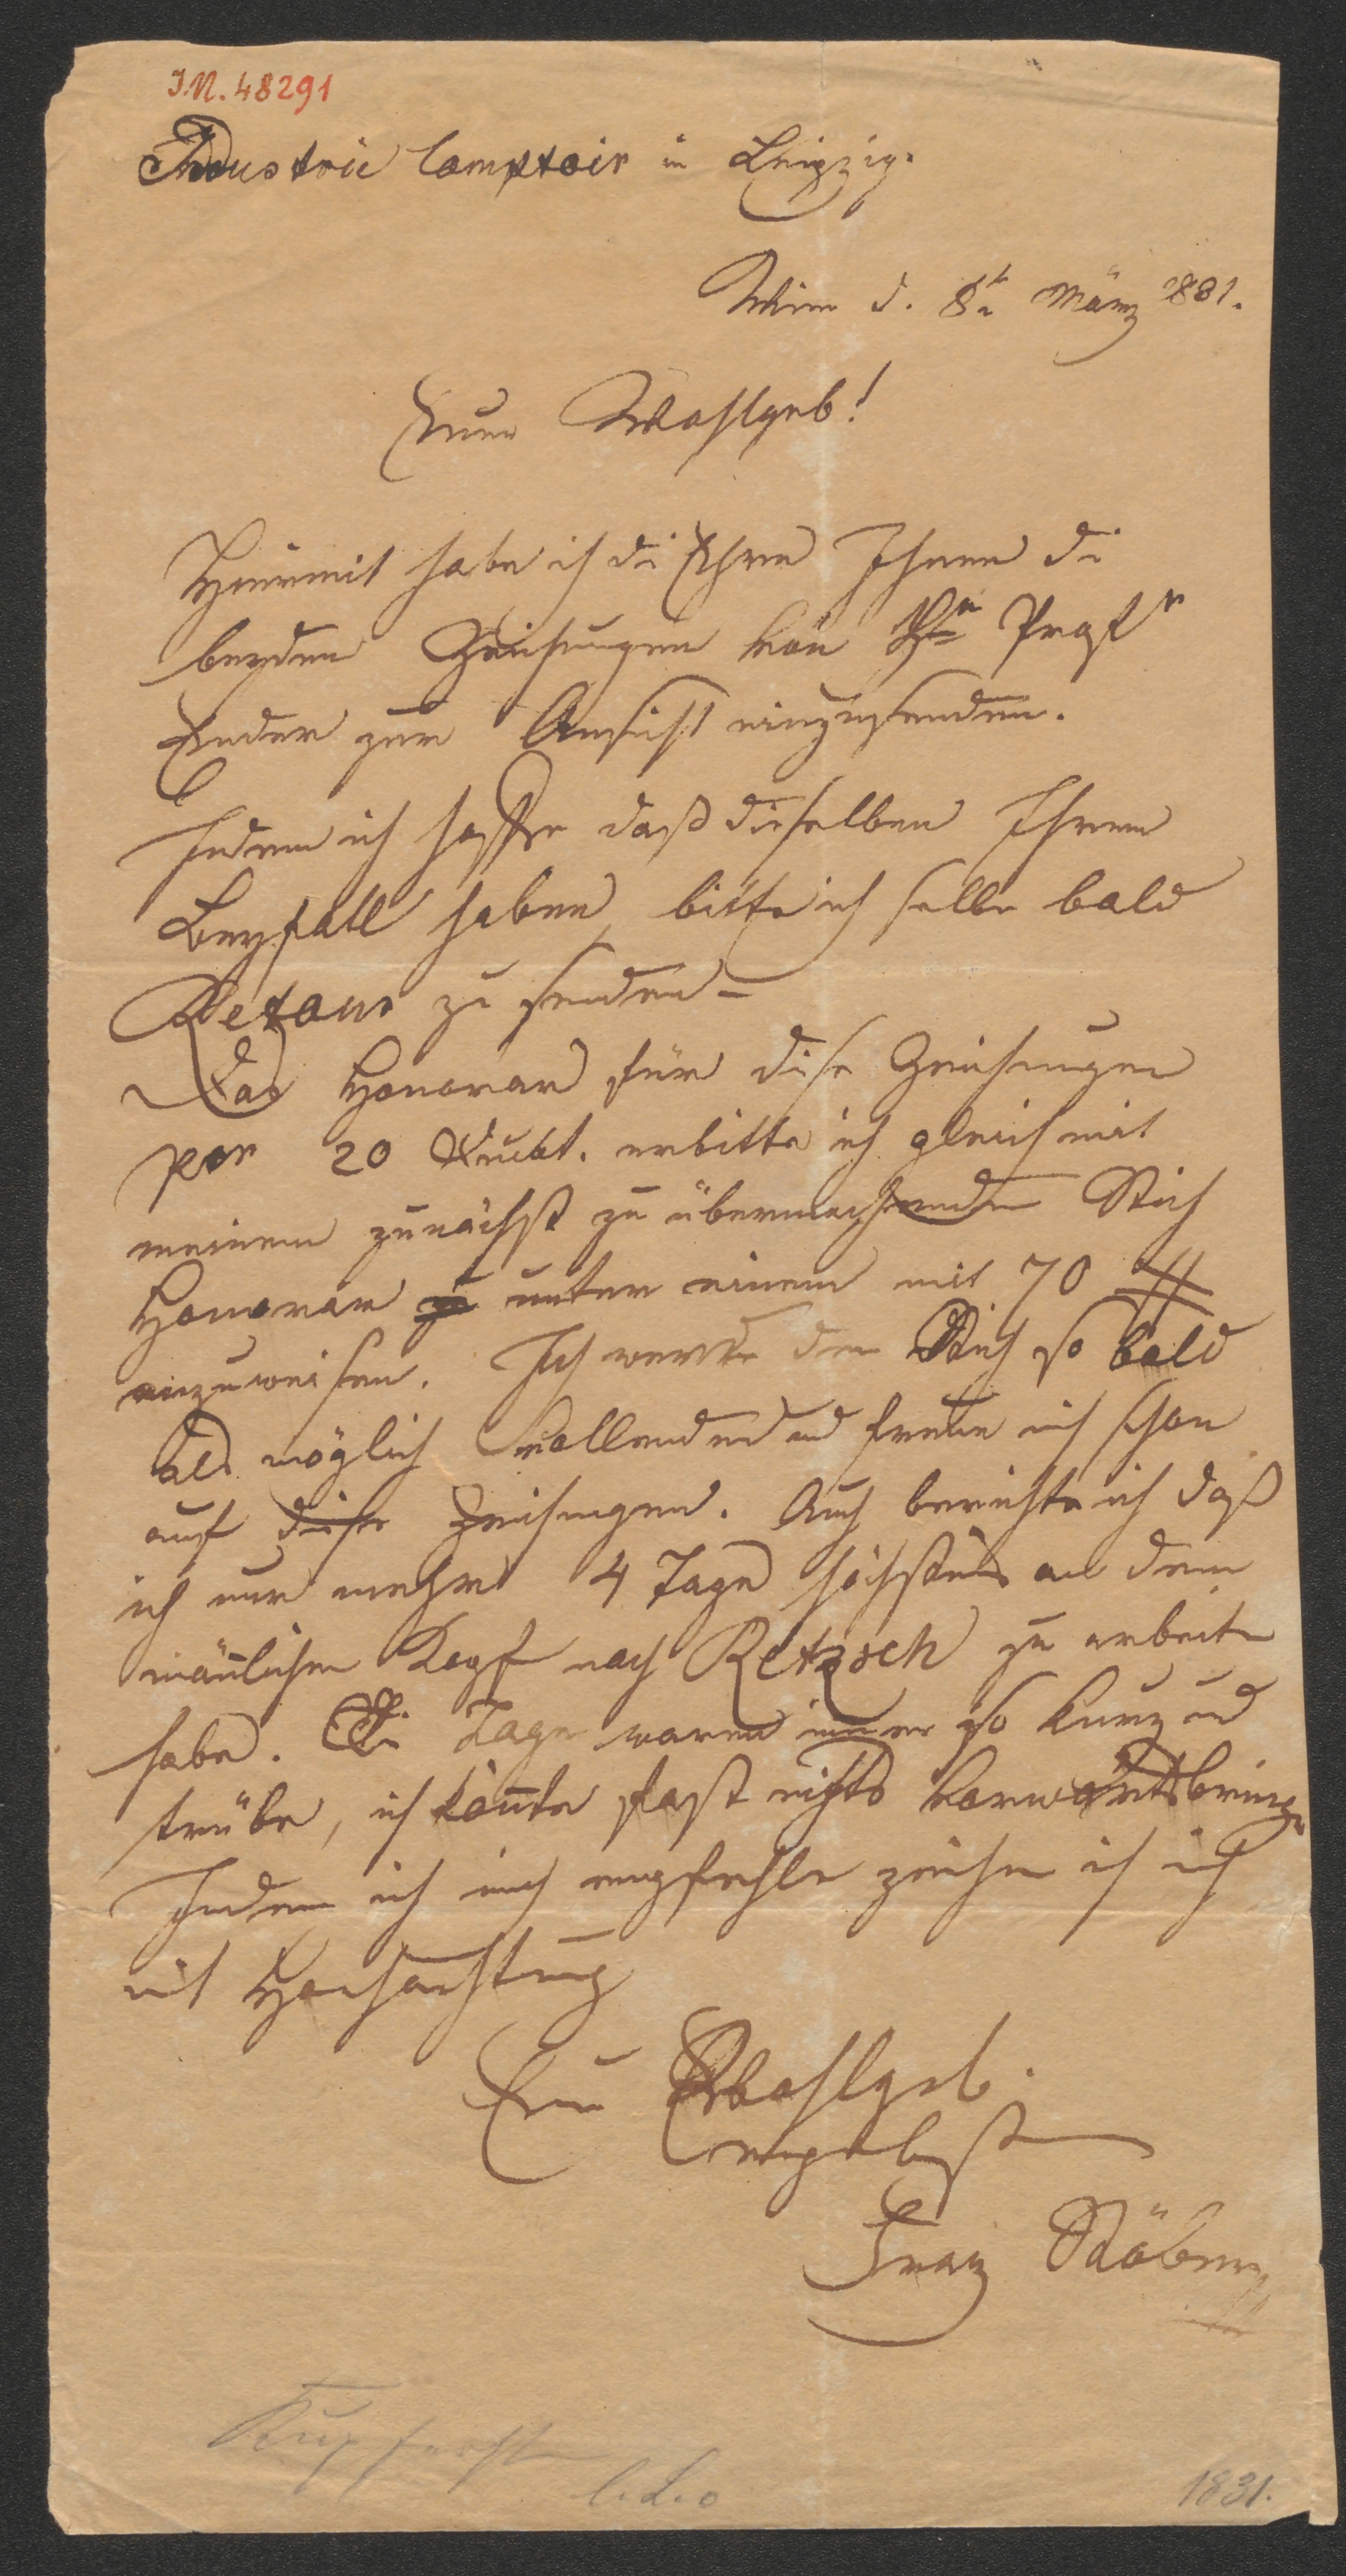 I.N. 48291
Industrie Comptoir in Leipzig.
Wien d. 8t. März 1831.
Euer Wohlgeb!
Hiermit habe ich di Ehre Ihnen di
beyden Zeichnungen von Hrn Profr
Ender zur Ansicht einzusenden.
Indem ich hoffe daß dieselben Ihren
Beyfall haben, bitte ich selbe bald
Retour zu senden –
Das Honorar für diese Zeichnungen
per 20 Dukt. erbitte ich gleich mit
meinem zunächst zu übermachenden Stich
Honorar unter einem mit 70 #
anzuweisen. Ich werde den Stich so bald
als möglich vollenden und freue mich schon
auf diese Zeichnungen. Auch berichte ich daß
ich nur mehr 4 Tage höchstens an dem
mänlichen Kopf nach Retzsch zu arbeiten
habe. Die Tage waren immer so kurz und
trübe, ich konnte fast nichts vorwärtsbringen
Indem ich mich empfehle zeichne ich mich
mit Hochachtung
Euer Wohlgeb.
ergebenst
Franz Stöber
Kupferst
1831.